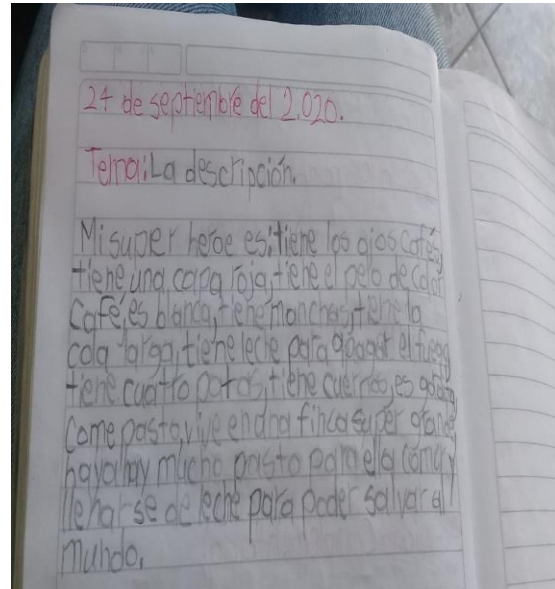 24 de septiembre del 2.020.
Tema: La descripción.
Mi super heroe es: tiene los ojos cafés,
tiene una capa roja, tiene el pelo de color
café, es blanca, tiene manchas, tiene la
cola larga, tiene leche para apagar el fuego
tiene cuatro patas, tiene cuernos, es
come pasto, vive en una finca super grande
haya hay mucho pasto para ella comer y
llenar se de leche para poder salvar al
mundo.